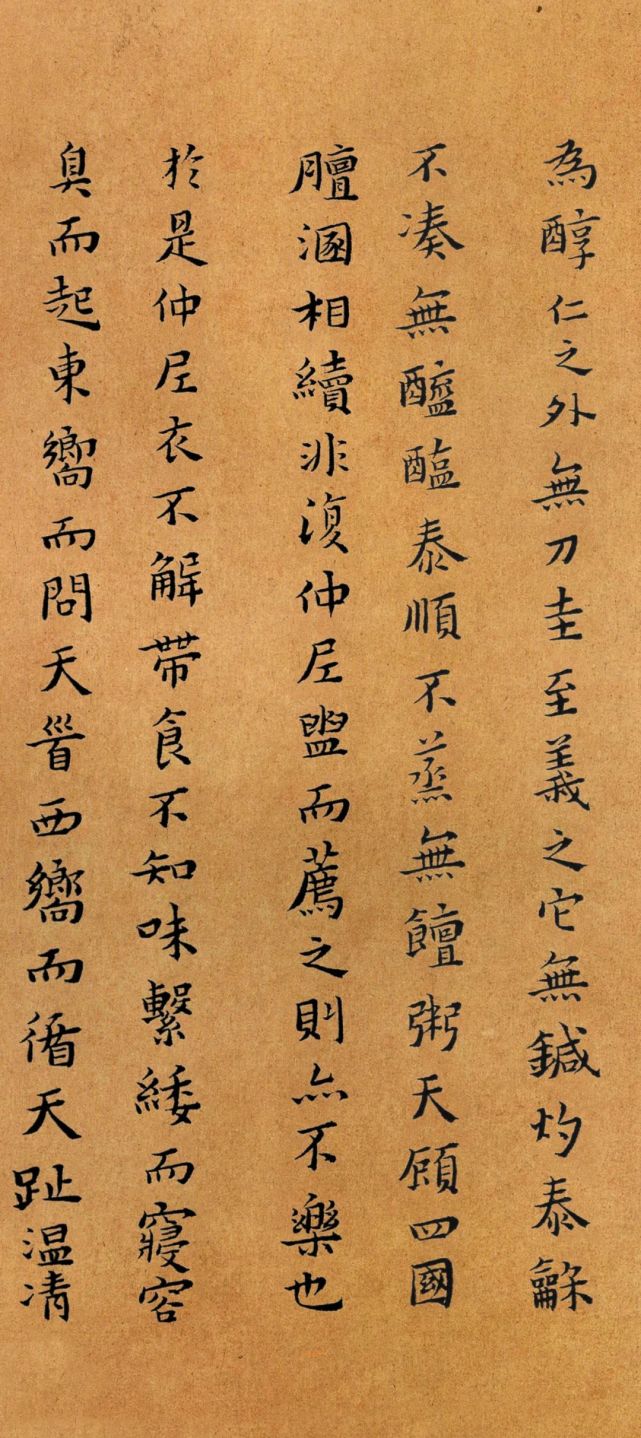 為醇仁之外無刀圭至義之它無鍼灼泰龢
不湊無醯醢泰順不蒸無饘粥天頋四國
膻溷相續非復仲尼盥而薦之則亦不樂也
於是仲尼衣不解帶食不知味繫緌而寢容
臭而起東嚮而問天首西嚮而循天趾温凊